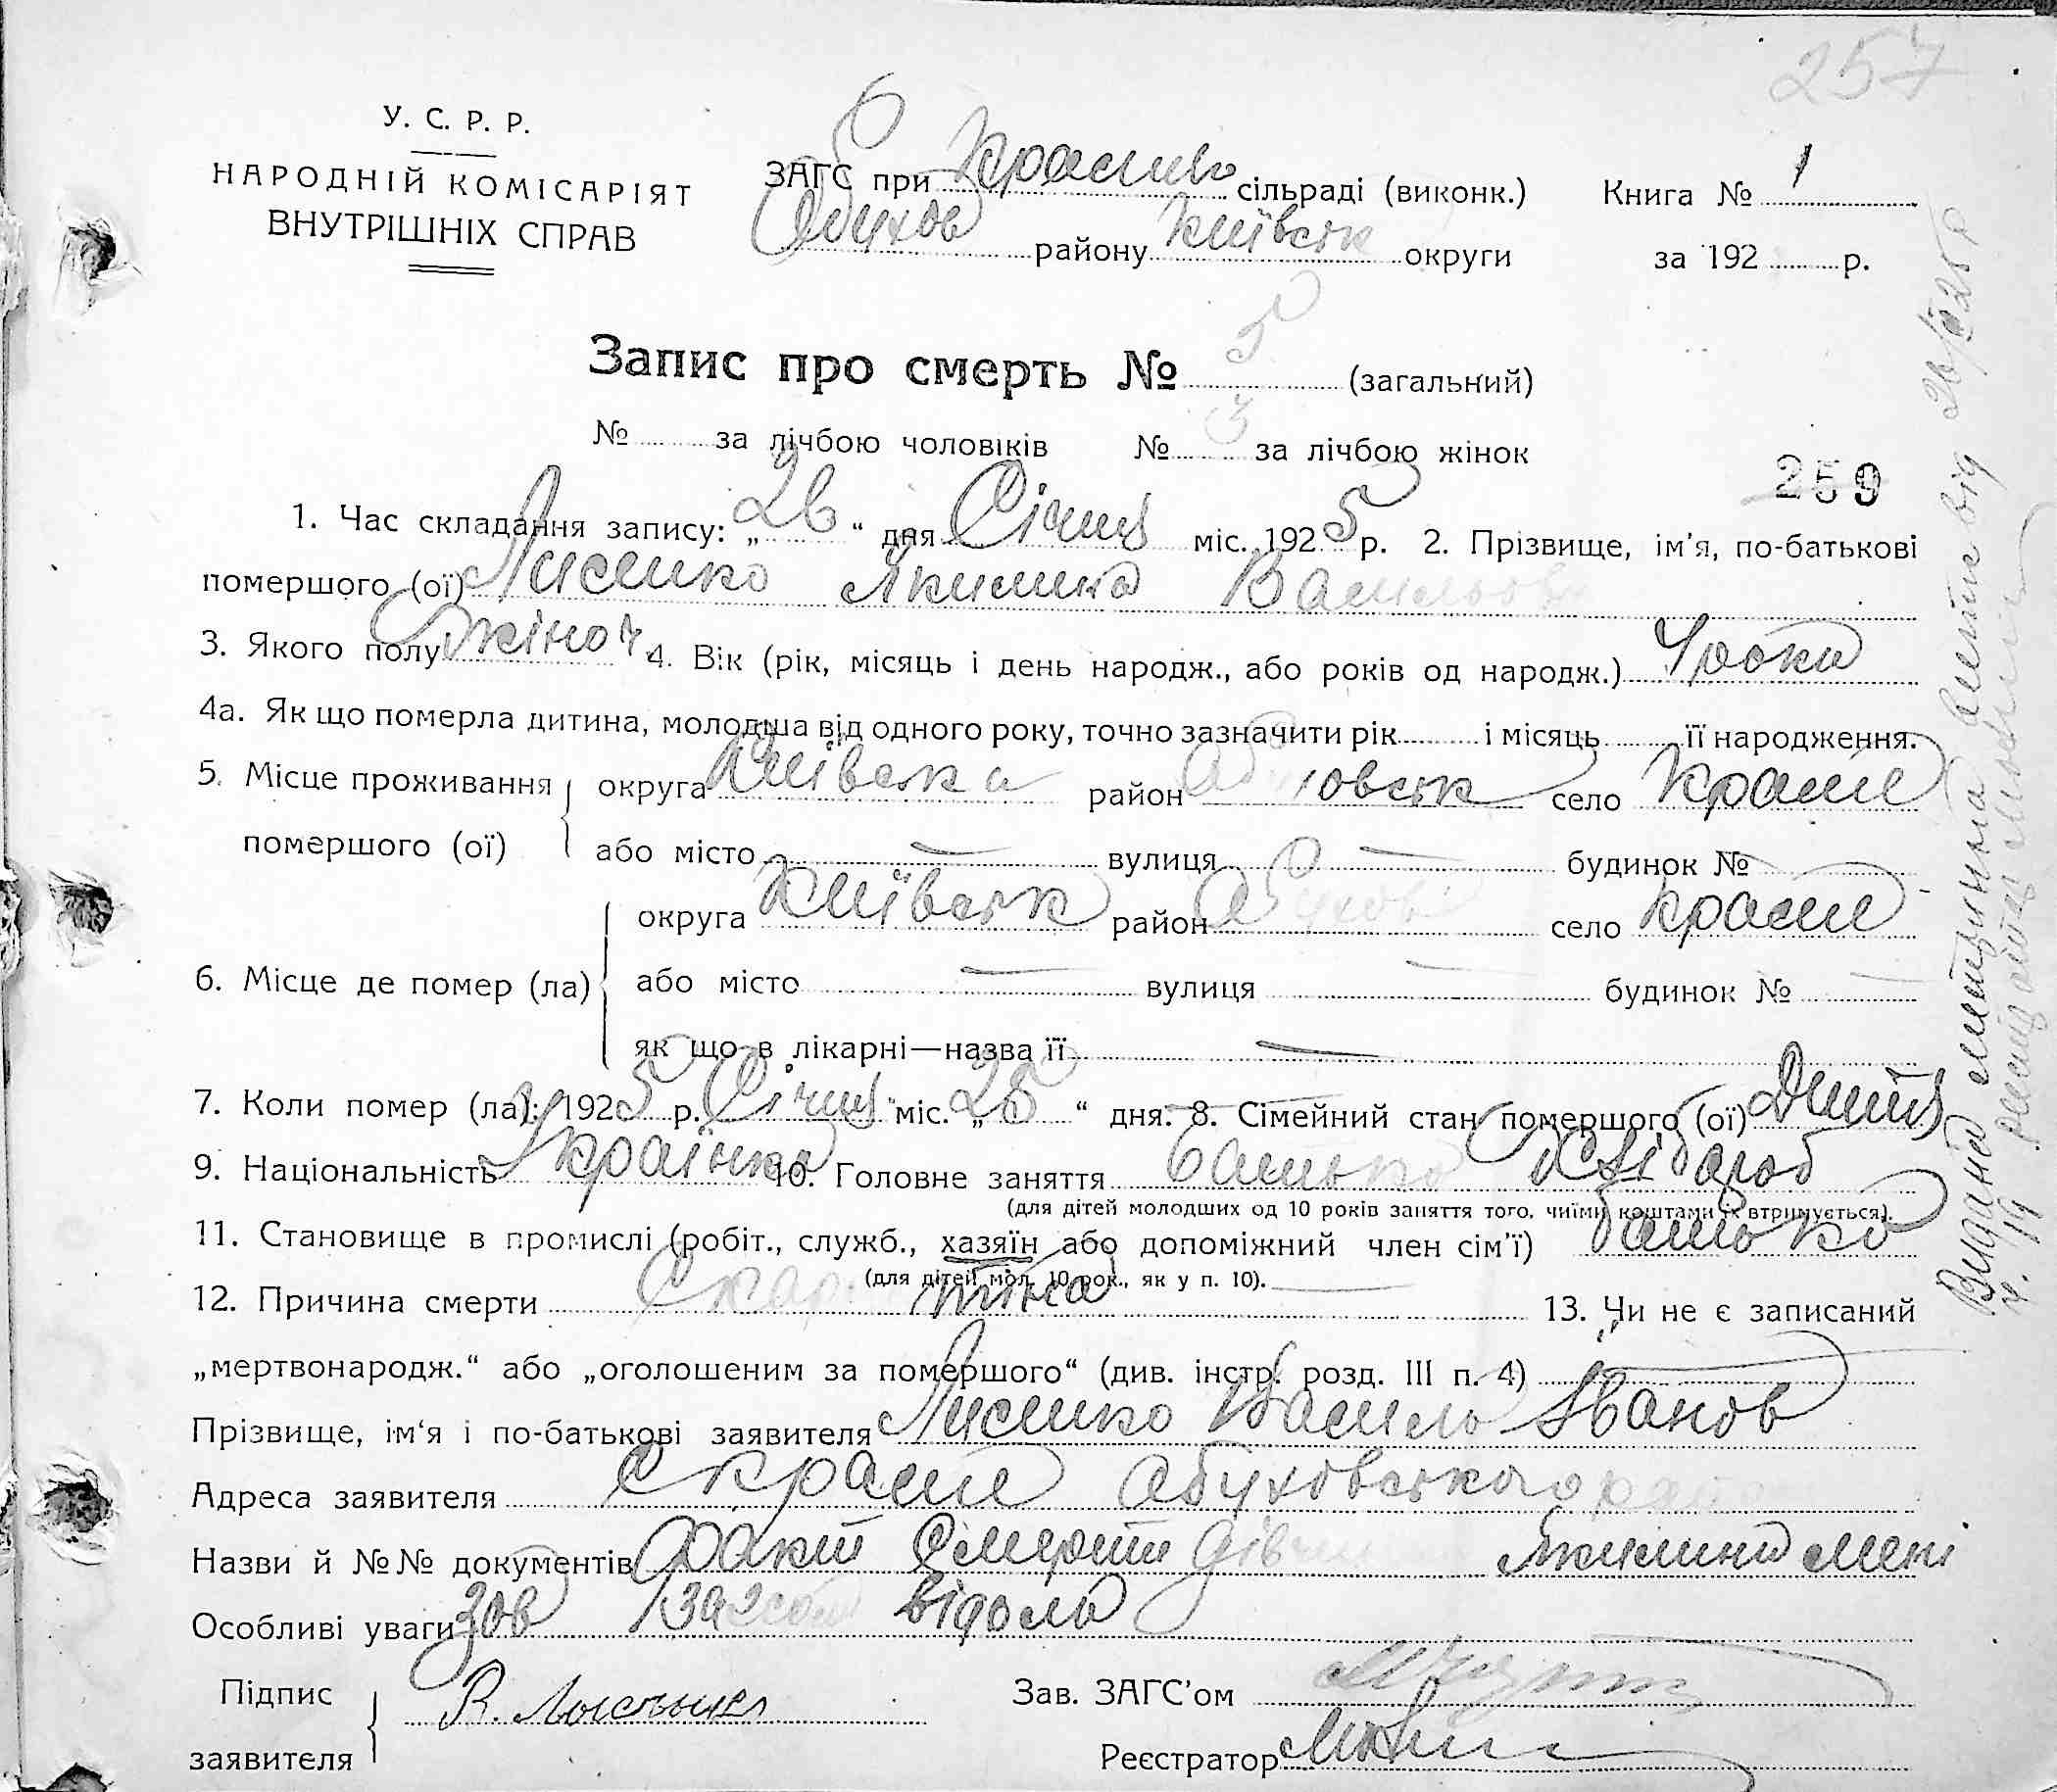 257
У. С. Р. Р.
НАРОДНІЙ КОМІСАРІЯТ
ВНУТРІШНІХ СПРАВ
6
ЗАГС при Красн сільраді (виконк.) Книга № 1
Обухов району Київськ округи за 192 р.
Запис про смерть № 5 (загальний)
№ за лічбою чоловіків № 3 за лічбою жінок
259
1. Час складання запису: „26“ дня Січня міс. 1925 р. 2. Прізвище, ім'я, по-батькові
помершого (ої) Лисенко Якилина Васильов
3. Якого полу жіноч 4. Вік (рік, місяць і день народж., або років од народж.) 4 роки
4а. Як що померла дитина, молодша від одного року, точно зазначити рік і місяць її народження.
5. Місце проживання округа Київська район Обуховськ село Красне
помершого (ої) або місто — вулиця — будинок №
округа Київськ район Обухов село Красне
6. Місце де помер (ла) або місто — вулиця — будинок № —
як що в лікарні—назва її —
7. Коли помер (ла): 1925 р. Січня міс. „25“ дня. 8. Сімейний стан помершого (ої) Дитя
9. Національність Українка 10. Головне заняття батько хлібороб
(для дітей молодших од 10 років заняття того, чиїми коштами їх втримується).
11. Становище в промислі (робіт., служб., хазяїн або допоміжний член сім'ї) батько
(для дітей мол. 10 рок., як у п. 10).
12. Причина смерти Скарлатина 13. Чи не є записаний
„мертвонародж.“ або „оголошеним за помершого“ (див. інстр. розд. III п. 4)
Прізвище, ім'я і по-батькові заявителя Лисенко Василь Іванов
Адреса заявителя с Красне Обуховського район
Назви й №№ документів Факт смерти дівчини Якилини мені
Особливі уваги відомо
Підпис
заявителя В. Лысенко
Зав. ЗАГС'ом
Реєстратор
Видано від 26/I 25 р